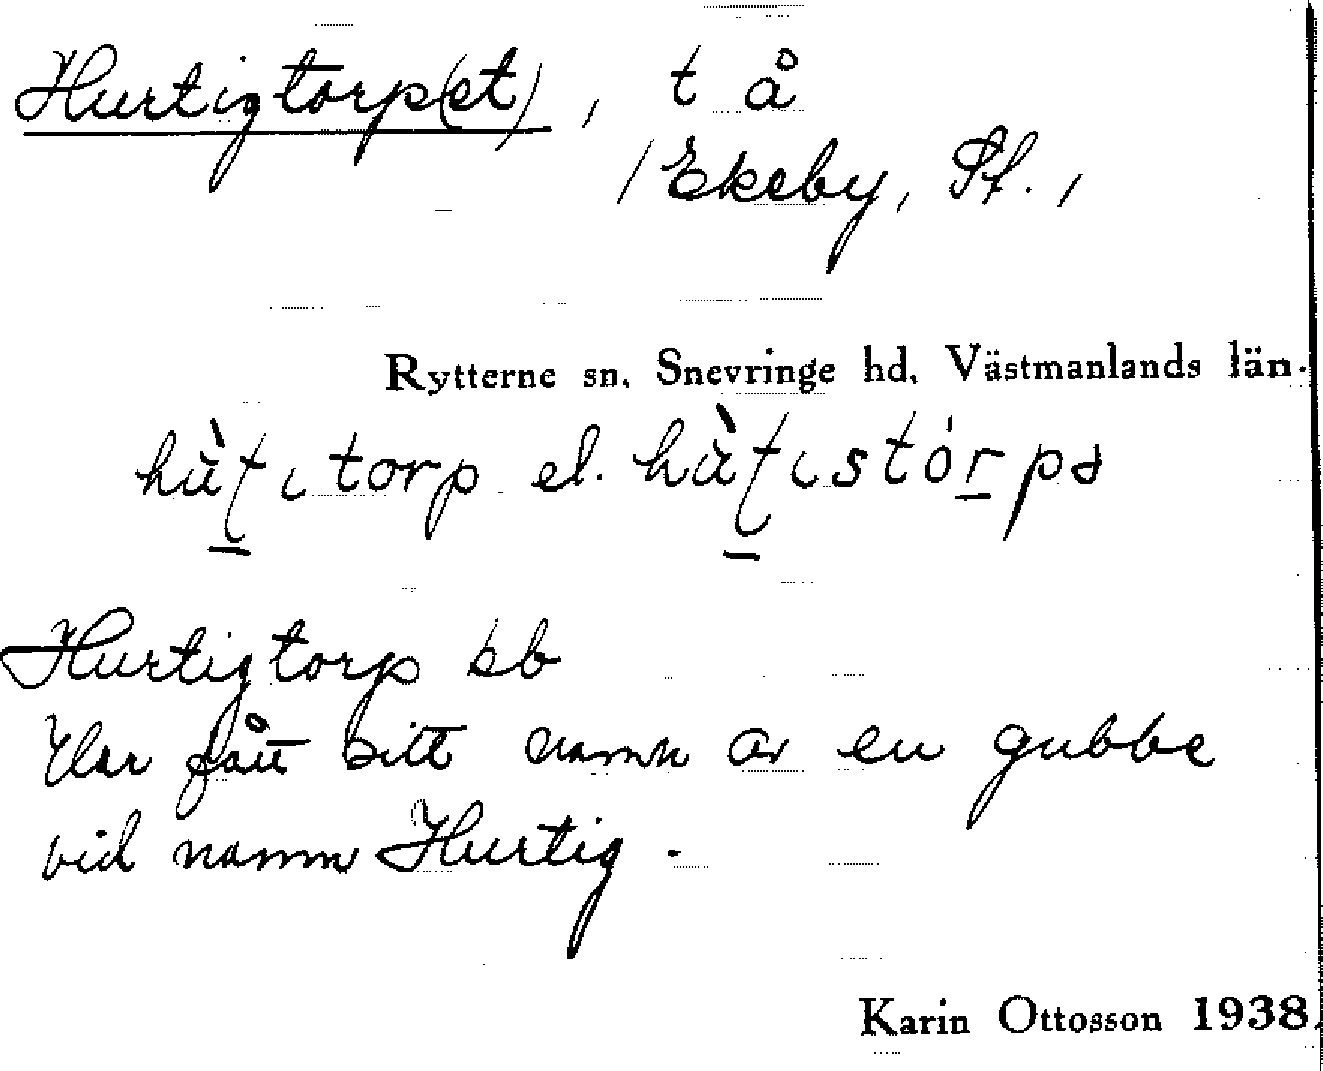 Hurtigtorp(et), t å
/Ekeby, Sf./
Rytterne sn. Snevringe hd. Västmanlands län.
el.
Hurtigtorp sb
Har fått sitt namn av en gubbe
vid namn Hurtig.
Karin Ottosson 1938.